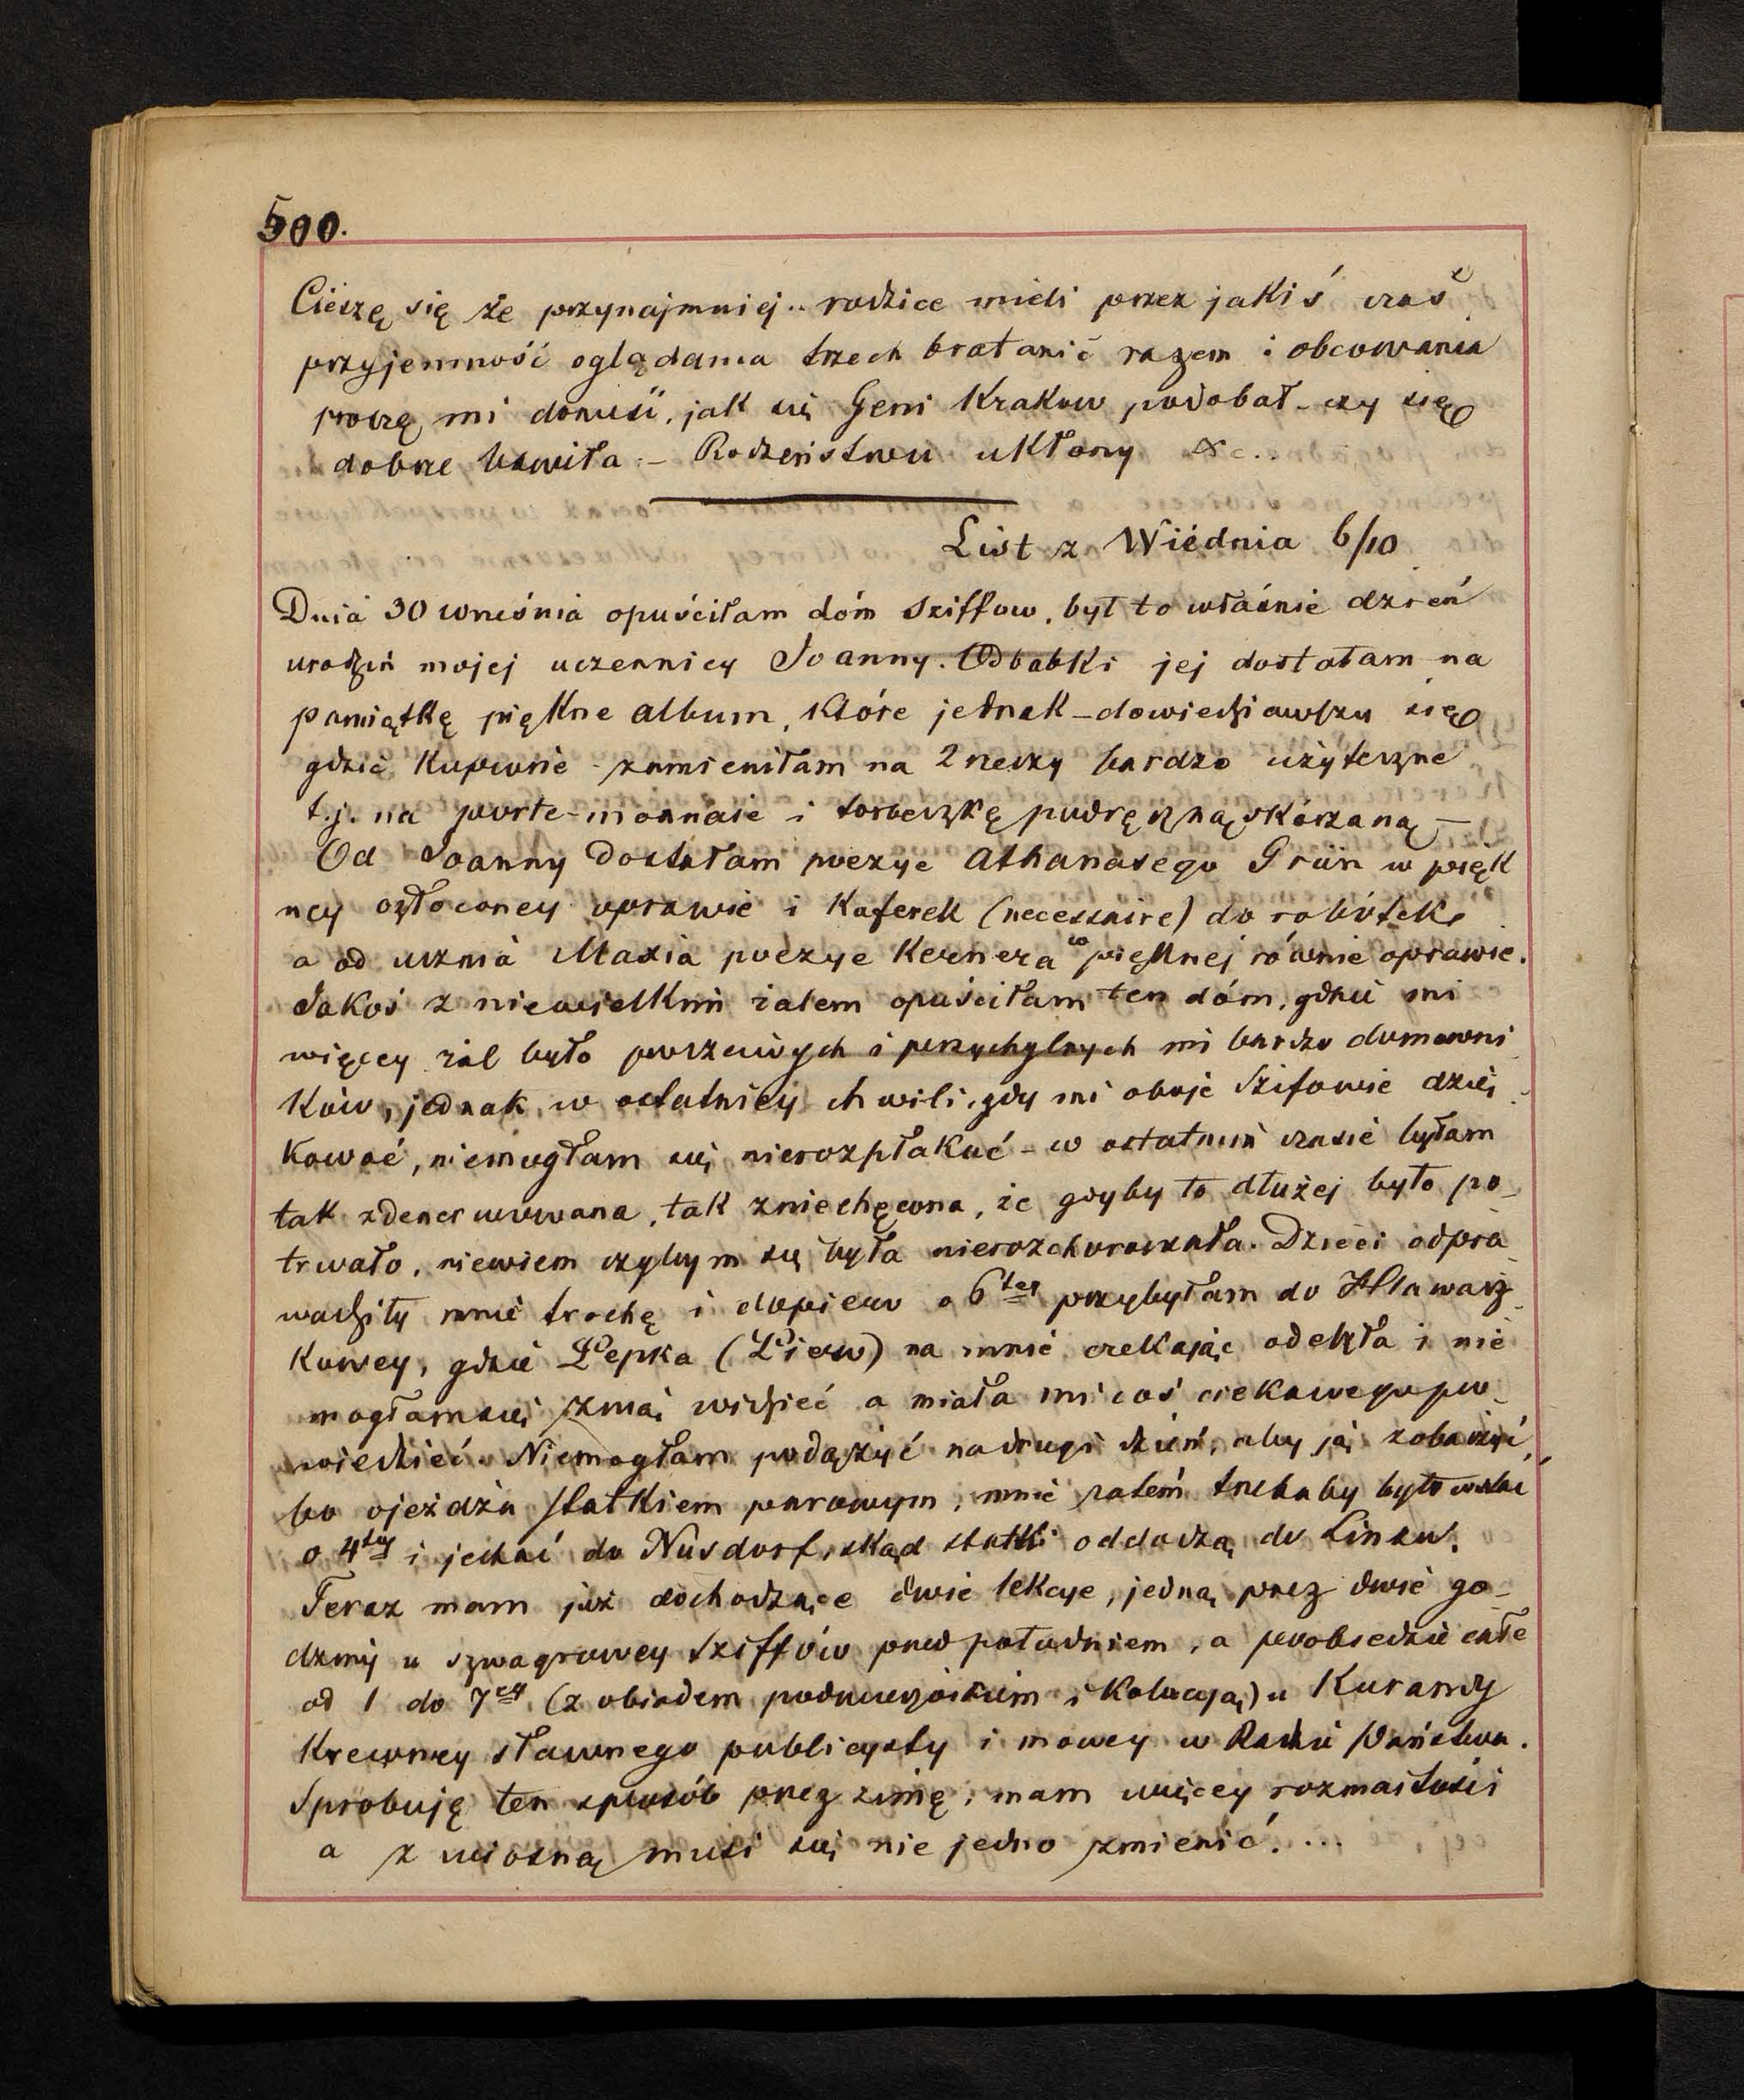 500.
Cieszę się że przynajmniej.. rodzice mieli przez jakiś czas
przyjemność oglądania trzech bratanic razem i obcowania
proszę mi donieść, jak się Geni Krakow podobał - czy się
dobrze bawiła. - Rodzeństwu ukłony &c..
List z Wiédnia 6/10
Dnia 30 września opuściłam dóm Sziffow, był to właśnie dzień
urodzin mojej uczennicy Joanny. Od babki jej dostałam na
pamiątkę piękne album, które jednak - dowiedziawszy się
gdzie kupione - zamieniłam na 2 rzeczy bardzo użyteczne
t.j. na porte-monnaie i torbeczkę podręczną skórzaną -
Od Joanny dostałam poezye Athanasego Grün w pięk
ney ozłoconey oprawie i kuferek (necessaire) do robótek,
a od ucznia Maxia poezye Kernera w pięknej równie oprawie.
Jakoś z niewielkim żalem opuściłam ten dóm, gdzie mi
więcey żal było poczciwych i przychylnych mi bardzo domowni
ków, jednak w ostatniey chwili, gdy mi oboje Szifowie dzię
kować, niemogłam się nierozpłakać - w ostatnim czasie byłam
tak zdenerwowana, tak zniechęcona, że gdyby to dłużej było po-
trwało, niewiem czybym się była nierozchorowała. Dzieci odpro
wadziły mnie trochę i dopiero o 6tej przybyłam do Hlawacz
kowey, gdzie Pepka (Piero) na mnie czekając odeszła i nie
mogłam się z nią widzieć a miała mi coś ciekawego po-
wiedzieć. Niemogłam podążyć na drugi dzień, aby ją zobaczyć,
bo ojeżdża statkiem parowym, mnie zatem trzebaby było wstać
o 4tey i jechać do Nusdorf, skąd statki odchodzą do Linzu.
Teraz mam już dochodzące dwie lekcye, jedną przez dwie go-
dziny u szwagrowey Sziffów przed południem, a poobiedzie całe
od 1 do 7ey (z obiadem podwieczorkiem i kolacyą) u Kurandy
krewney sławnego publicysty i mowcy w Radzie Państwa.
Sprobuję ten sposób przez zimę, mam więcey rozmaitości
a z wiosną musi się nie jedno zmienić! ...